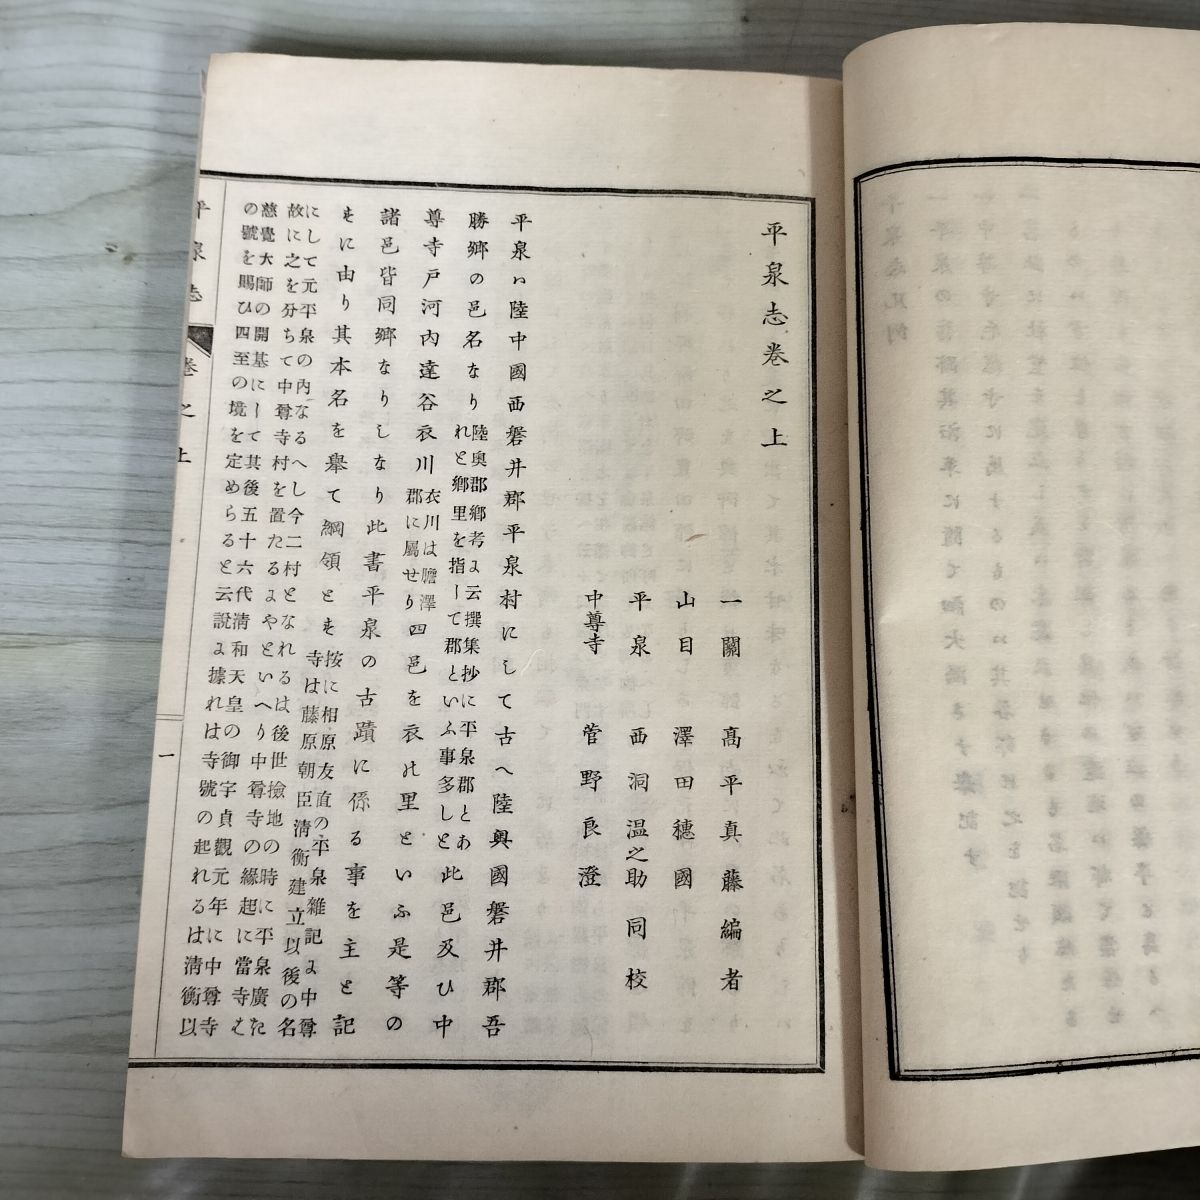 平泉志卷之上
一關 高平真藤編者
山目 澤田穗國
平泉 西洞温之助同校
中尊寺 菅野良澄
平泉ハ陸中國西磐井郡平泉村にして古へ陸奥國磐井郡吾
勝郷の邑名なり
陸奥郡郷考ニ云撰集抄に平泉郡とあ
れと郷里を指して郡といふ事多しと
此邑及ひ中
尊寺戸河内達谷衣川
衣川は膽澤
郡に屬せり
四邑を衣の里といふ是等の
諸邑皆同郷なりしなり此書平泉の古蹟に係る事を主と記
すに由り其本名を擧て綱領とす
按に相原友直の平泉雜記ニ中尊
寺は藤原朝臣清衡建立以後の名
にして元平泉の内なるへし今二村となれるは後世撿地の時に平泉廣た
故に之を分ちて中尊寺村を置たるにやといへり中尊寺の緣起に當寺は
慈覺大師の開基にして其後五十六代清和天皇の御宇貞觀元年に中尊寺
の號を賜ひ四至の境を定めらると云説ニ據れは寺號の起れるは清衡以
平泉志 卷之上 一